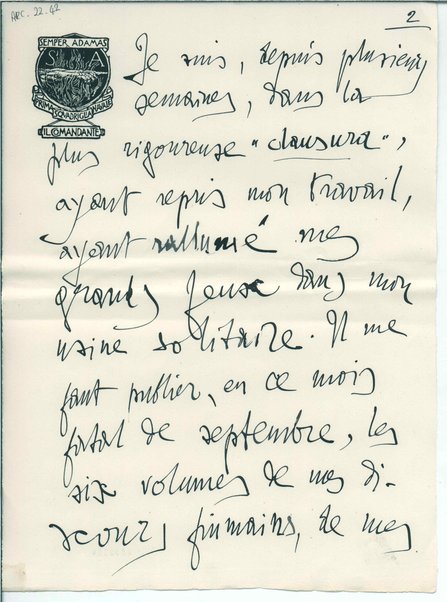 ARC. 22.42
2
SEMPER ADAMAS
S A
PRIMA SQUADRIGLIA NAVALE
IL COMANDANTE
Je suis, depuis plusieurs
semaines, dans la
plus rigoureuse "clausura",
ayant repris mon travail,
ayant rallumé mes
grands feux dans mon
usine solitaire. Il me
faut publier, en ce mois
fatal de septembre, les
six volumes de mes di-
scours fiumains, de mes